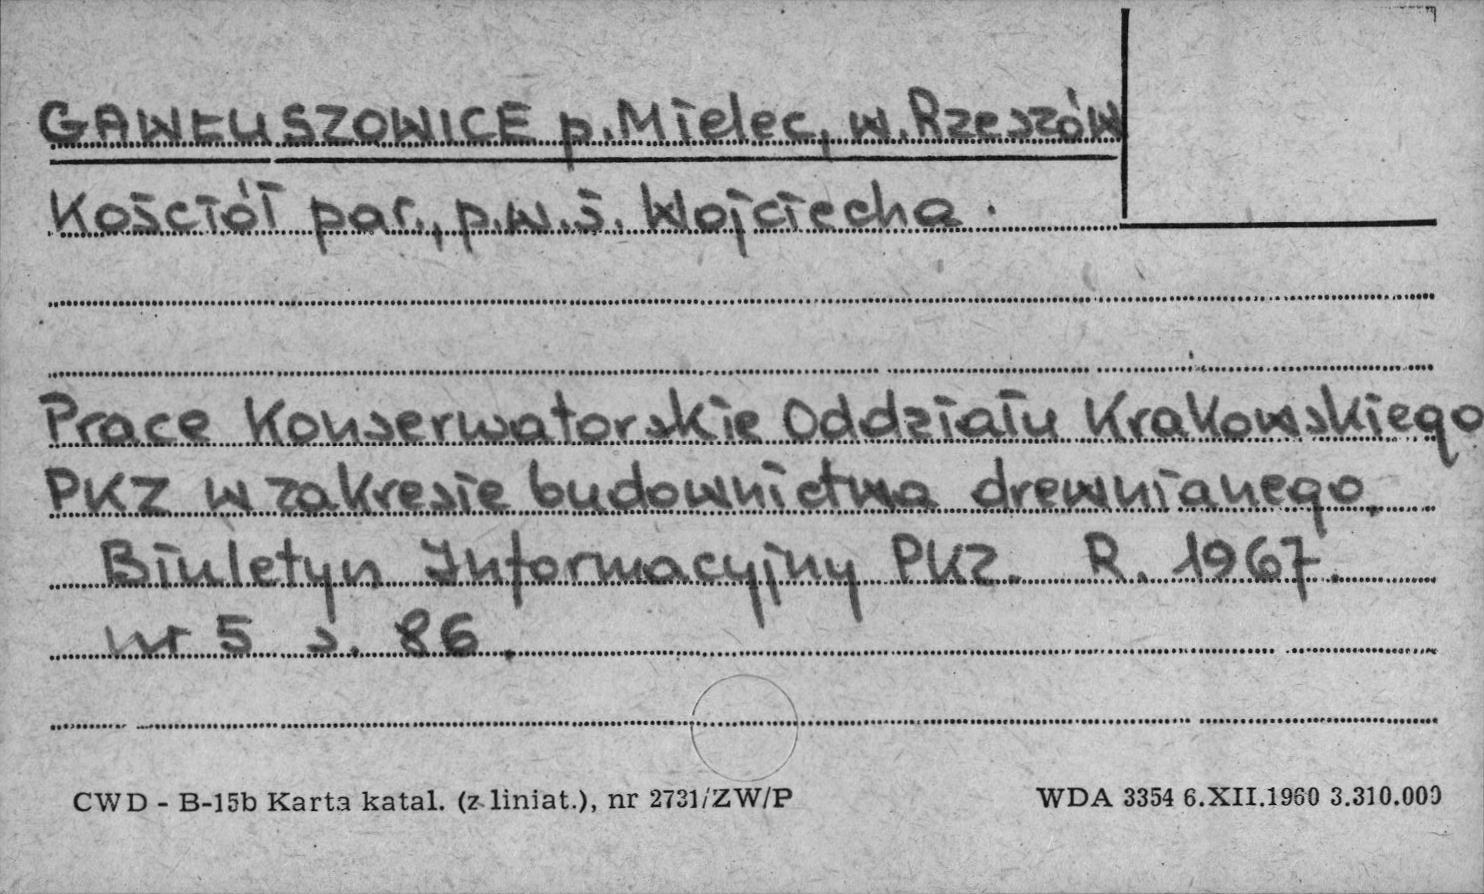 GAWŁUSZOWICE p. Mielec, w. Rzeszów
Kościół par., p.w. ś. Wojciecha.
Prace Konserwatorskie Oddziału Krakowskiego
PKZ w zakresie budownictwa drewnianego.
Biuletyn Informacyjny PKZ. R. 1967.
nr 5 s. 86.
CWD - B-15b Karta katal. (z liniat.), nr 2731/ZW/P
WDA 3354 6.XII.1960 3.310.000